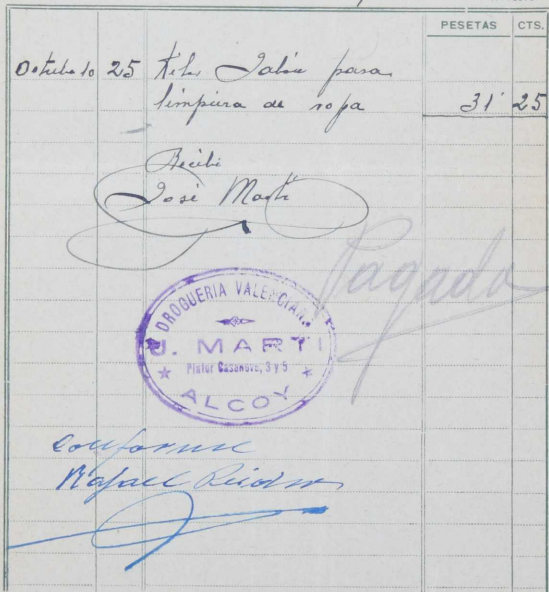 PESETAS CTS.
Octubre 10 25 Kilos Jabón para
limpieza de ropa 31' 25
Recibi
José Marti
Pagado
DROGUERIA VALENCIANA
J. MARTI
Pintor Casanova, 3 y 5
ALCOY
Conforme
Rafael